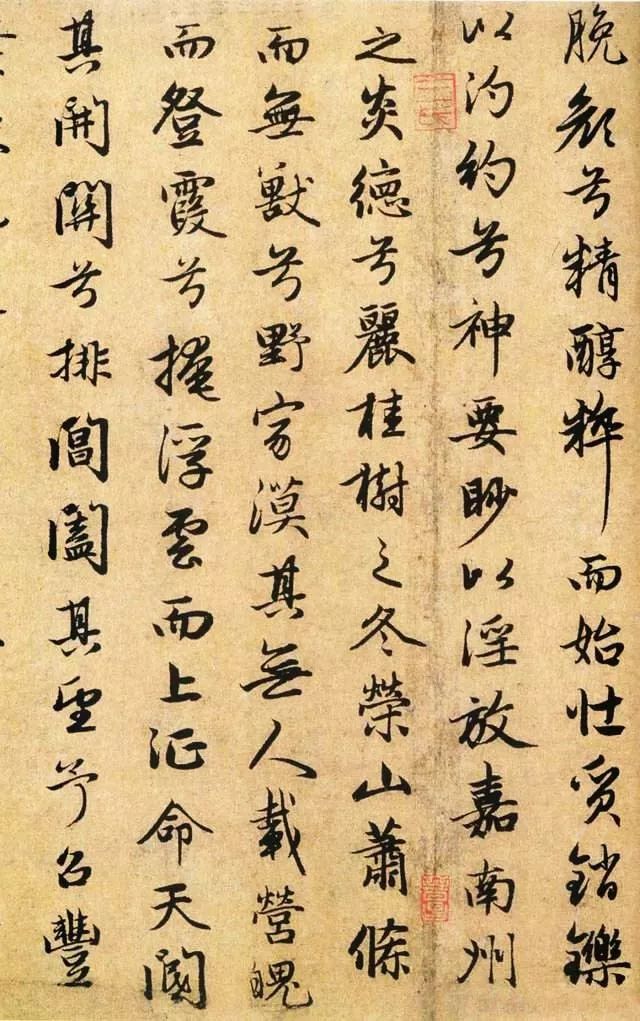 脕顔兮精醇粹而始壮質銷鑠
以汋約兮神要眇以淫放嘉南州
之炎德兮麗桂樹之冬榮山蕭條
而無獸兮野寂漠其無人載營魄
而登霞兮掩浮雲而上征命天閽
其開關兮排閶闔其望予召豐